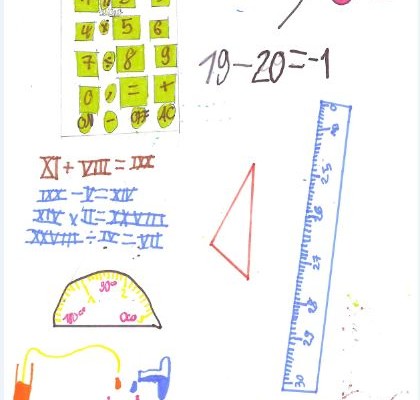 4 5 6
7 ÷ 8 9
0 , = +
ON - OFF AC
19-20=-1
XI + VIII = IXX
IXX - V = XIV
XIV x II = XXVIII
XXVIII ÷ IV = VII
90°
180°
0
25
26
27
28
29
30